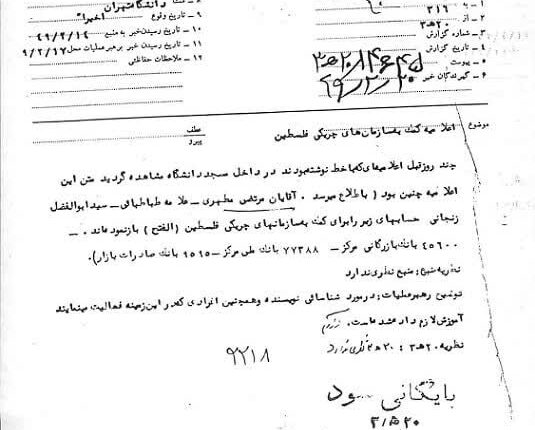 ۱ - به ۳۱۶
۲ - از ۲۰ ه‍ ۳
۳ - شماره گزارش
۴ - تاریخ گزارش
۵ - پیوست
۶ - گیرندگان خبر
دانشگاه تهران
۹ - تاریخ وقوع اخیرا"
۱۰ - تاریخ رسیدن خبر به منبع ۴۹/۲/۱۴
۱۱ - تاریخ رسیدن خبر برهبر عملیات محل ۴۹/۲/۱۷
۱۲ - ملاحظات حفاظتی
موضوع اعلامیه کمک به سازمان‌های چریکی فلسطین
عطف
پیرو
چند روز قبل اعلامیه‌ای که با خط نوشته بودند در داخل مسجد دانشگاه مشاهده گردید متن این
اعلامیه چنین بود ( باطلاع میرسد . آقایان مرتضی مطهری - علامه طباطبائی - سید ابوالفضل
زنجانی حسابهای زیر را برای کمک به سازمانهای چریکی فلسطین ( الفتح ) باز نموده‌اند . -
۴۵۶۰۰ بانک بازرگانی مرکز - ۷۷۳۸۸ بانک ملی مرکز - ۹۵۹۵ بانک صادرات بازار ).
نظریه منبع : منبع نظری ندارد
توضیح رهبر عملیات : در مورد شناسائی نویسنده و همچنین افرادی که در این زمینه فعالیت مینمایند
آموزش لازم داده شده است .
نظریه ۲۰ ه‍ ۳ : ۲۰ ه‍ ۳ نظری ندارد
۹۲۱۸
بایگانی شود